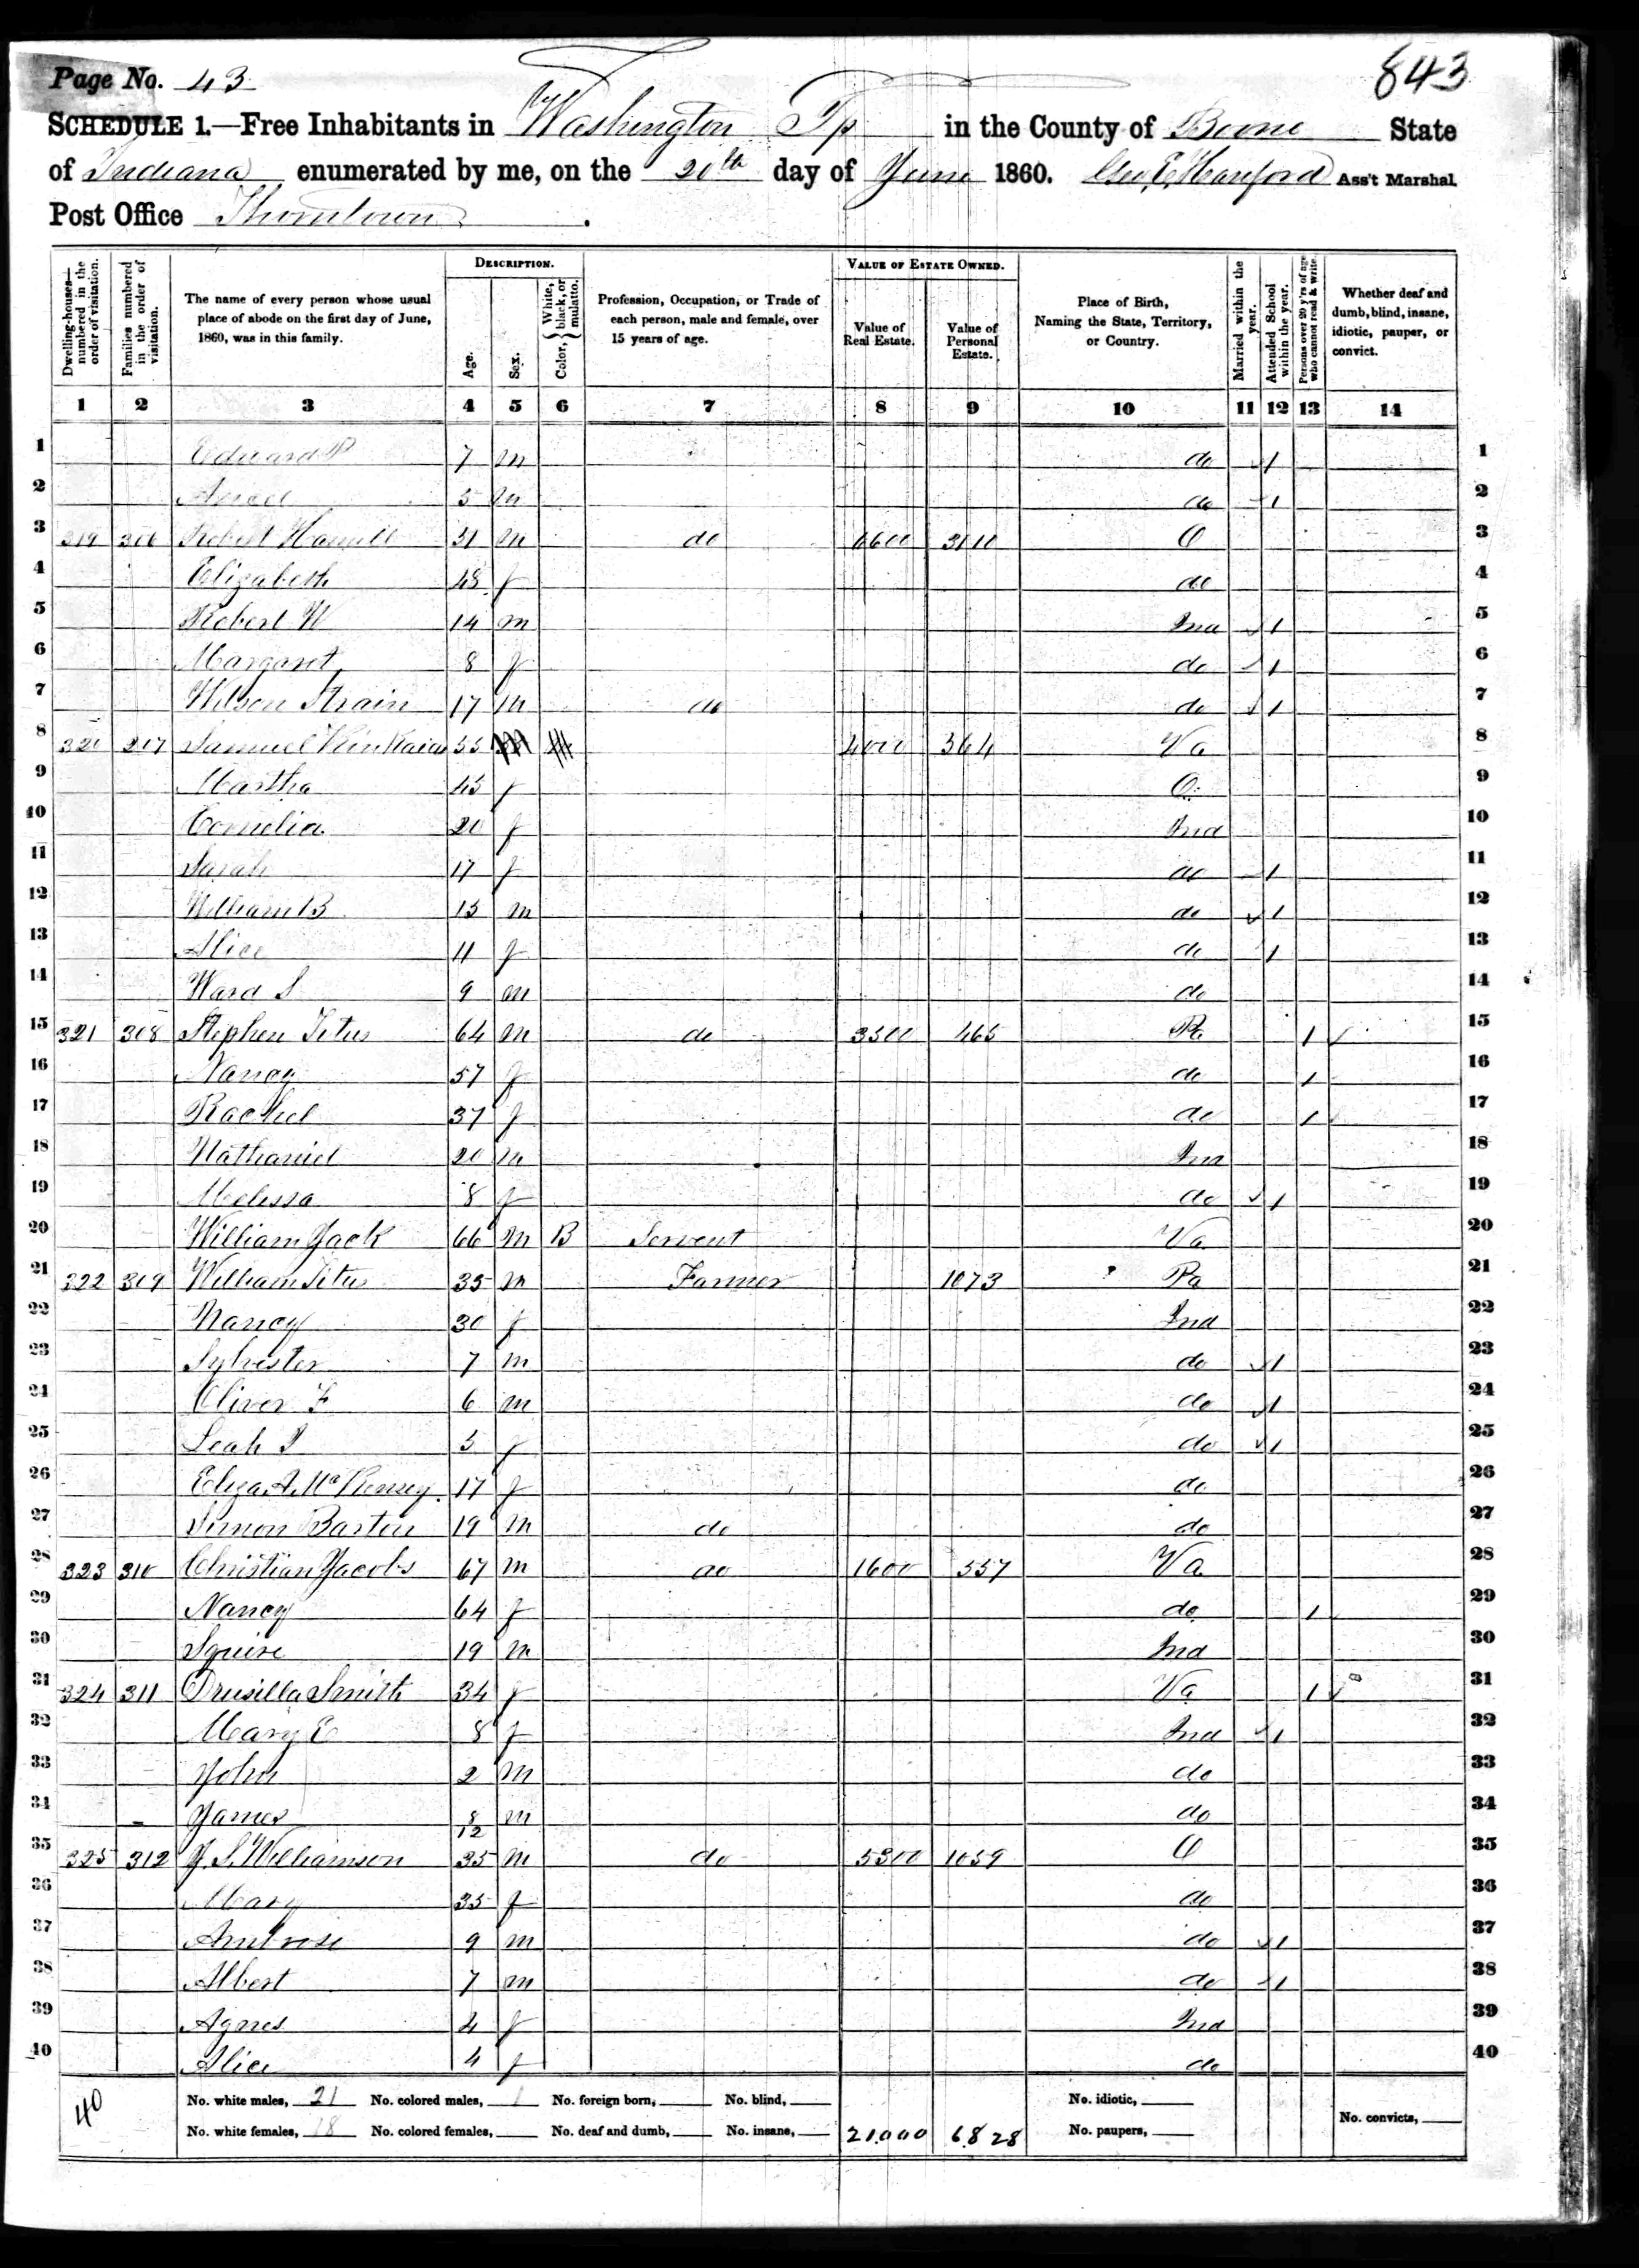 Page No. 43
843
SCHEDULE 1.—Free Inhabitants in Washington Tp in the County of Boone State
of Indiana enumerated by me, on the 20th day of June 1860. Geo. E. Hanford Ass't Marshal.
Post Office Thorntown.
Dwelling-houses—numbered in the order of visitation.
Families numbered in the order of visitation.
The name of every person whose usual place of abode on the first day of June, 1860, was in this family.
DESCRIPTION.
Age.
Sex.
Color, White, black, or mulatto.
Profession, Occupation, or Trade of each person, male and female, over 15 years of age.
VALUE OF ESTATE OWNED.
Value of Real Estate.
Value of Personal Estate.
Place of Birth, Naming the State, Territory, or Country.
Married within the year.
Attended School within the year.
Persons over 20 y'rs of age who cannot read & write.
Whether deaf and dumb, blind, insane, idiotic, pauper, or convict.
1 2 3 4 5 6 7 8 9 10 11 12 13 14
1 Edward P 7 m do 1 1
2 5 m do 1 2
3 319 306 Robert 51 m do 6600 3110 O 3
4 Elizabeth 48 f do 4
5 Robert W 14 m Ind 1 5
6 Margaret 8 f do 1 6
7 Wilson Strain 17 m do do 1 7
8 320 307 Samuel Kinkaid 55 4000 364 Va 8
9 Martha 45 f O. 9
10 Cornelia 20 f Ind 10
11 Sarah 17 f do 1 11
12 William B 15 m do 1 12
13 Alice 11 f do 1 13
14 Ward S 9 m do 14
15 321 308 Stephen Titus 64 m do 3500 465 Pa 1 15
16 Nancy 57 f do 1 16
17 Rachel 37 f do 1 17
18 Nathaniel 20 m Ind 18
19 Melissa 8 f do 1 19
20 William Jack 66 m B Servent Va 20
21 322 309 William Titus 35 m Farmer 1073 Pa 21
22 Nancy 30 f Ind 22
23 Sylvester 7 m do 1 23
24 Oliver F 6 m do 1 24
25 Leah J 5 f do 1 25
26 Eliza A. McKinsey 17 f do 26
27 Simon Barten 19 m do do 27
28 323 310 Christian Jacobs 67 m do 1600 557 Va 28
29 Nancy 64 f do 1 29
30 Squire 19 m Ind 30
31 324 311 Drusilla Smith 34 f Va 1 31
32 Mary E 8 f Ind 1 32
33 John 2 m do 33
34 James 8/12 m do 34
35 325 312 J. S. Williamson 35 m do 5300 1059 O 35
36 Mary 35 f do 36
37 Ambrose 9 m do 1 37
38 Albert 7 m do 1 38
39 Agnes 4 f Ind 39
40 Alice 4 f do 40
40
No. white males, 21 No. colored males, 1 No. foreign born, No. blind, No. idiotic,
No. white females, 18 No. colored females, No. deaf and dumb, No. insane, 21,000 6828 No. paupers, No. convicts,